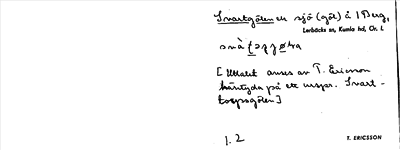 Svartgölen en sjö (göl) å 1 Berg,
Lerbäcks sn, Kumla hd, Ör. l.
[Uttalet anses av T. Ericsson
häntyda på ett urspr. Svart-
torpsgölen]
1.2
T. ERICSSON